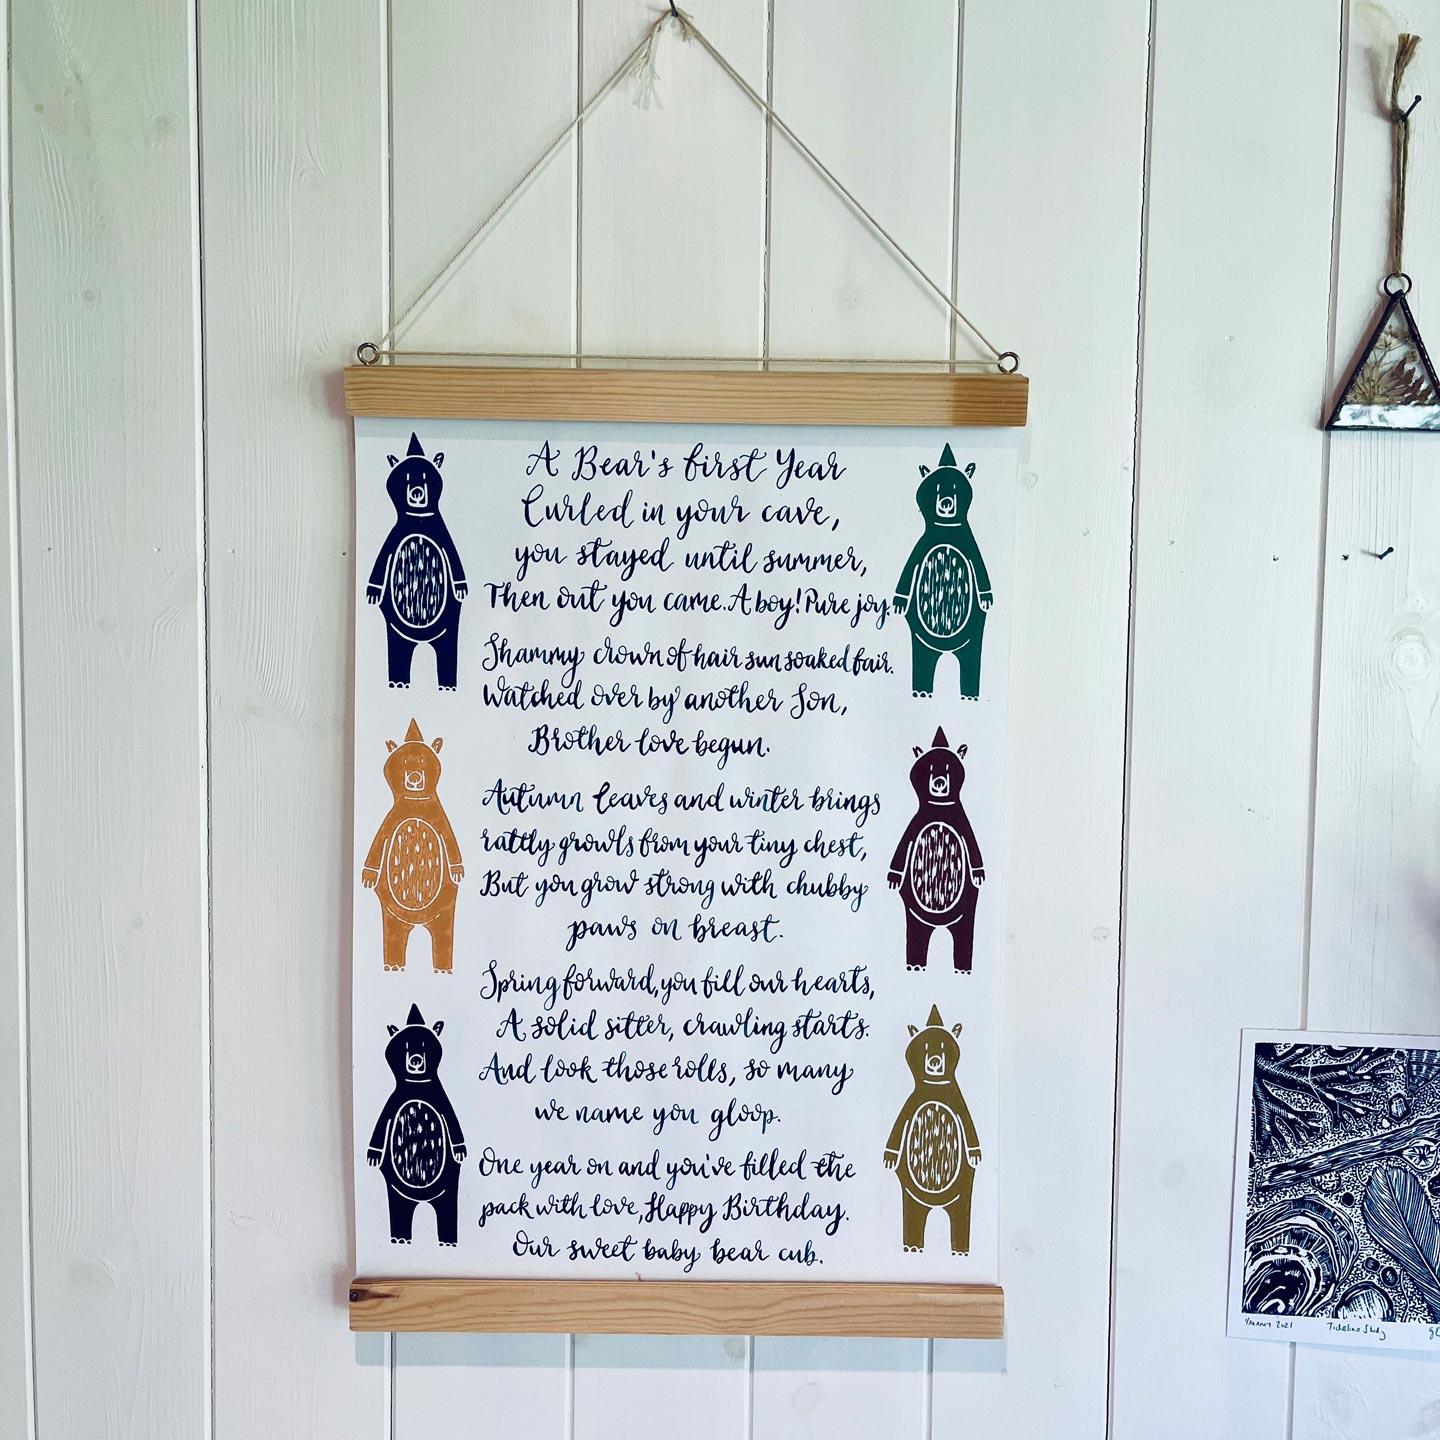 A Bear's first Year
Curled in your cave,
you stayed until summer,
Then out you came. A boy! Pure joy.
Shammy crown of hair sun soaked fair.
Watched over by another Son,
Brother love begun.
Autumn leaves and winter brings
rattly growls from your tiny chest,
But you grow strong with chubby
paws on breast.
Spring forward, you fill our hearts,
A solid sitter, crawling starts.
And look those rolls, so many
we name you gloop.
One year on and you've filled the
pack with love, Happy Birthday.
Our sweet baby bear cub.
2021
Tideline Study